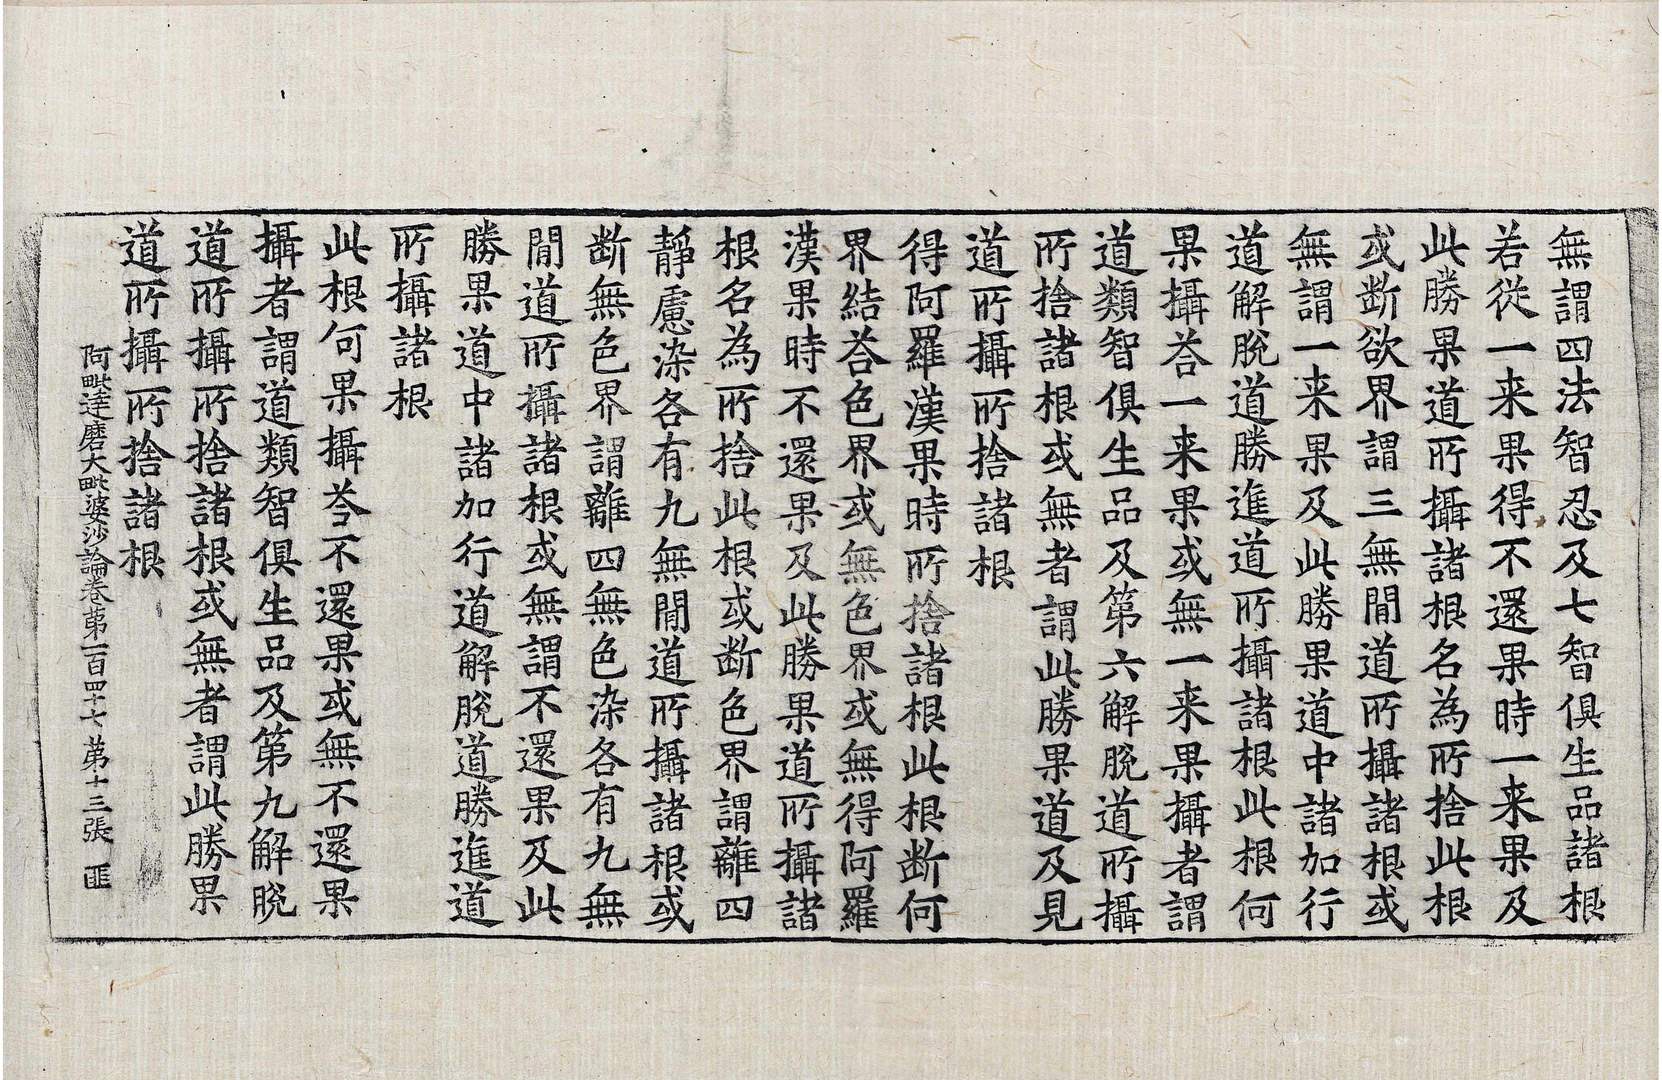 無謂四法智忍及七智俱生品諸根
若從一来果得不還果時一来果及
此勝果道所攝諸根名為所捨此根
或断欲界謂三無間道所攝諸根或
無謂一来果及此勝果道中諸加行
道解脫道勝進道所攝諸根此根何
果攝荅一来果或無一来果攝者謂
道類智俱生品及第六解脫道所攝
所捨諸根或無者謂此勝果道及見
道所攝所捨諸根
得阿羅漢果時所捨諸根此根断何
界結荅色界或無色界或無得阿羅
漢果時不還果及此勝果道所攝諸
根名為所捨此根或断色界謂離四
靜慮染各有九無間道所攝諸根或
断無色界謂離四無色染各有九無
間道所攝諸根或無謂不還果及此
勝果道中諸加行道解脫道勝進道
所攝諸根
此根何果攝荅不還果或無不還果
攝者謂道類智俱生品及第九解脫
道所攝所捨諸根或無者謂此勝果
道所攝所捨諸根
阿毗達磨大毗婆沙論卷苐一百四十七 苐十三張 匪